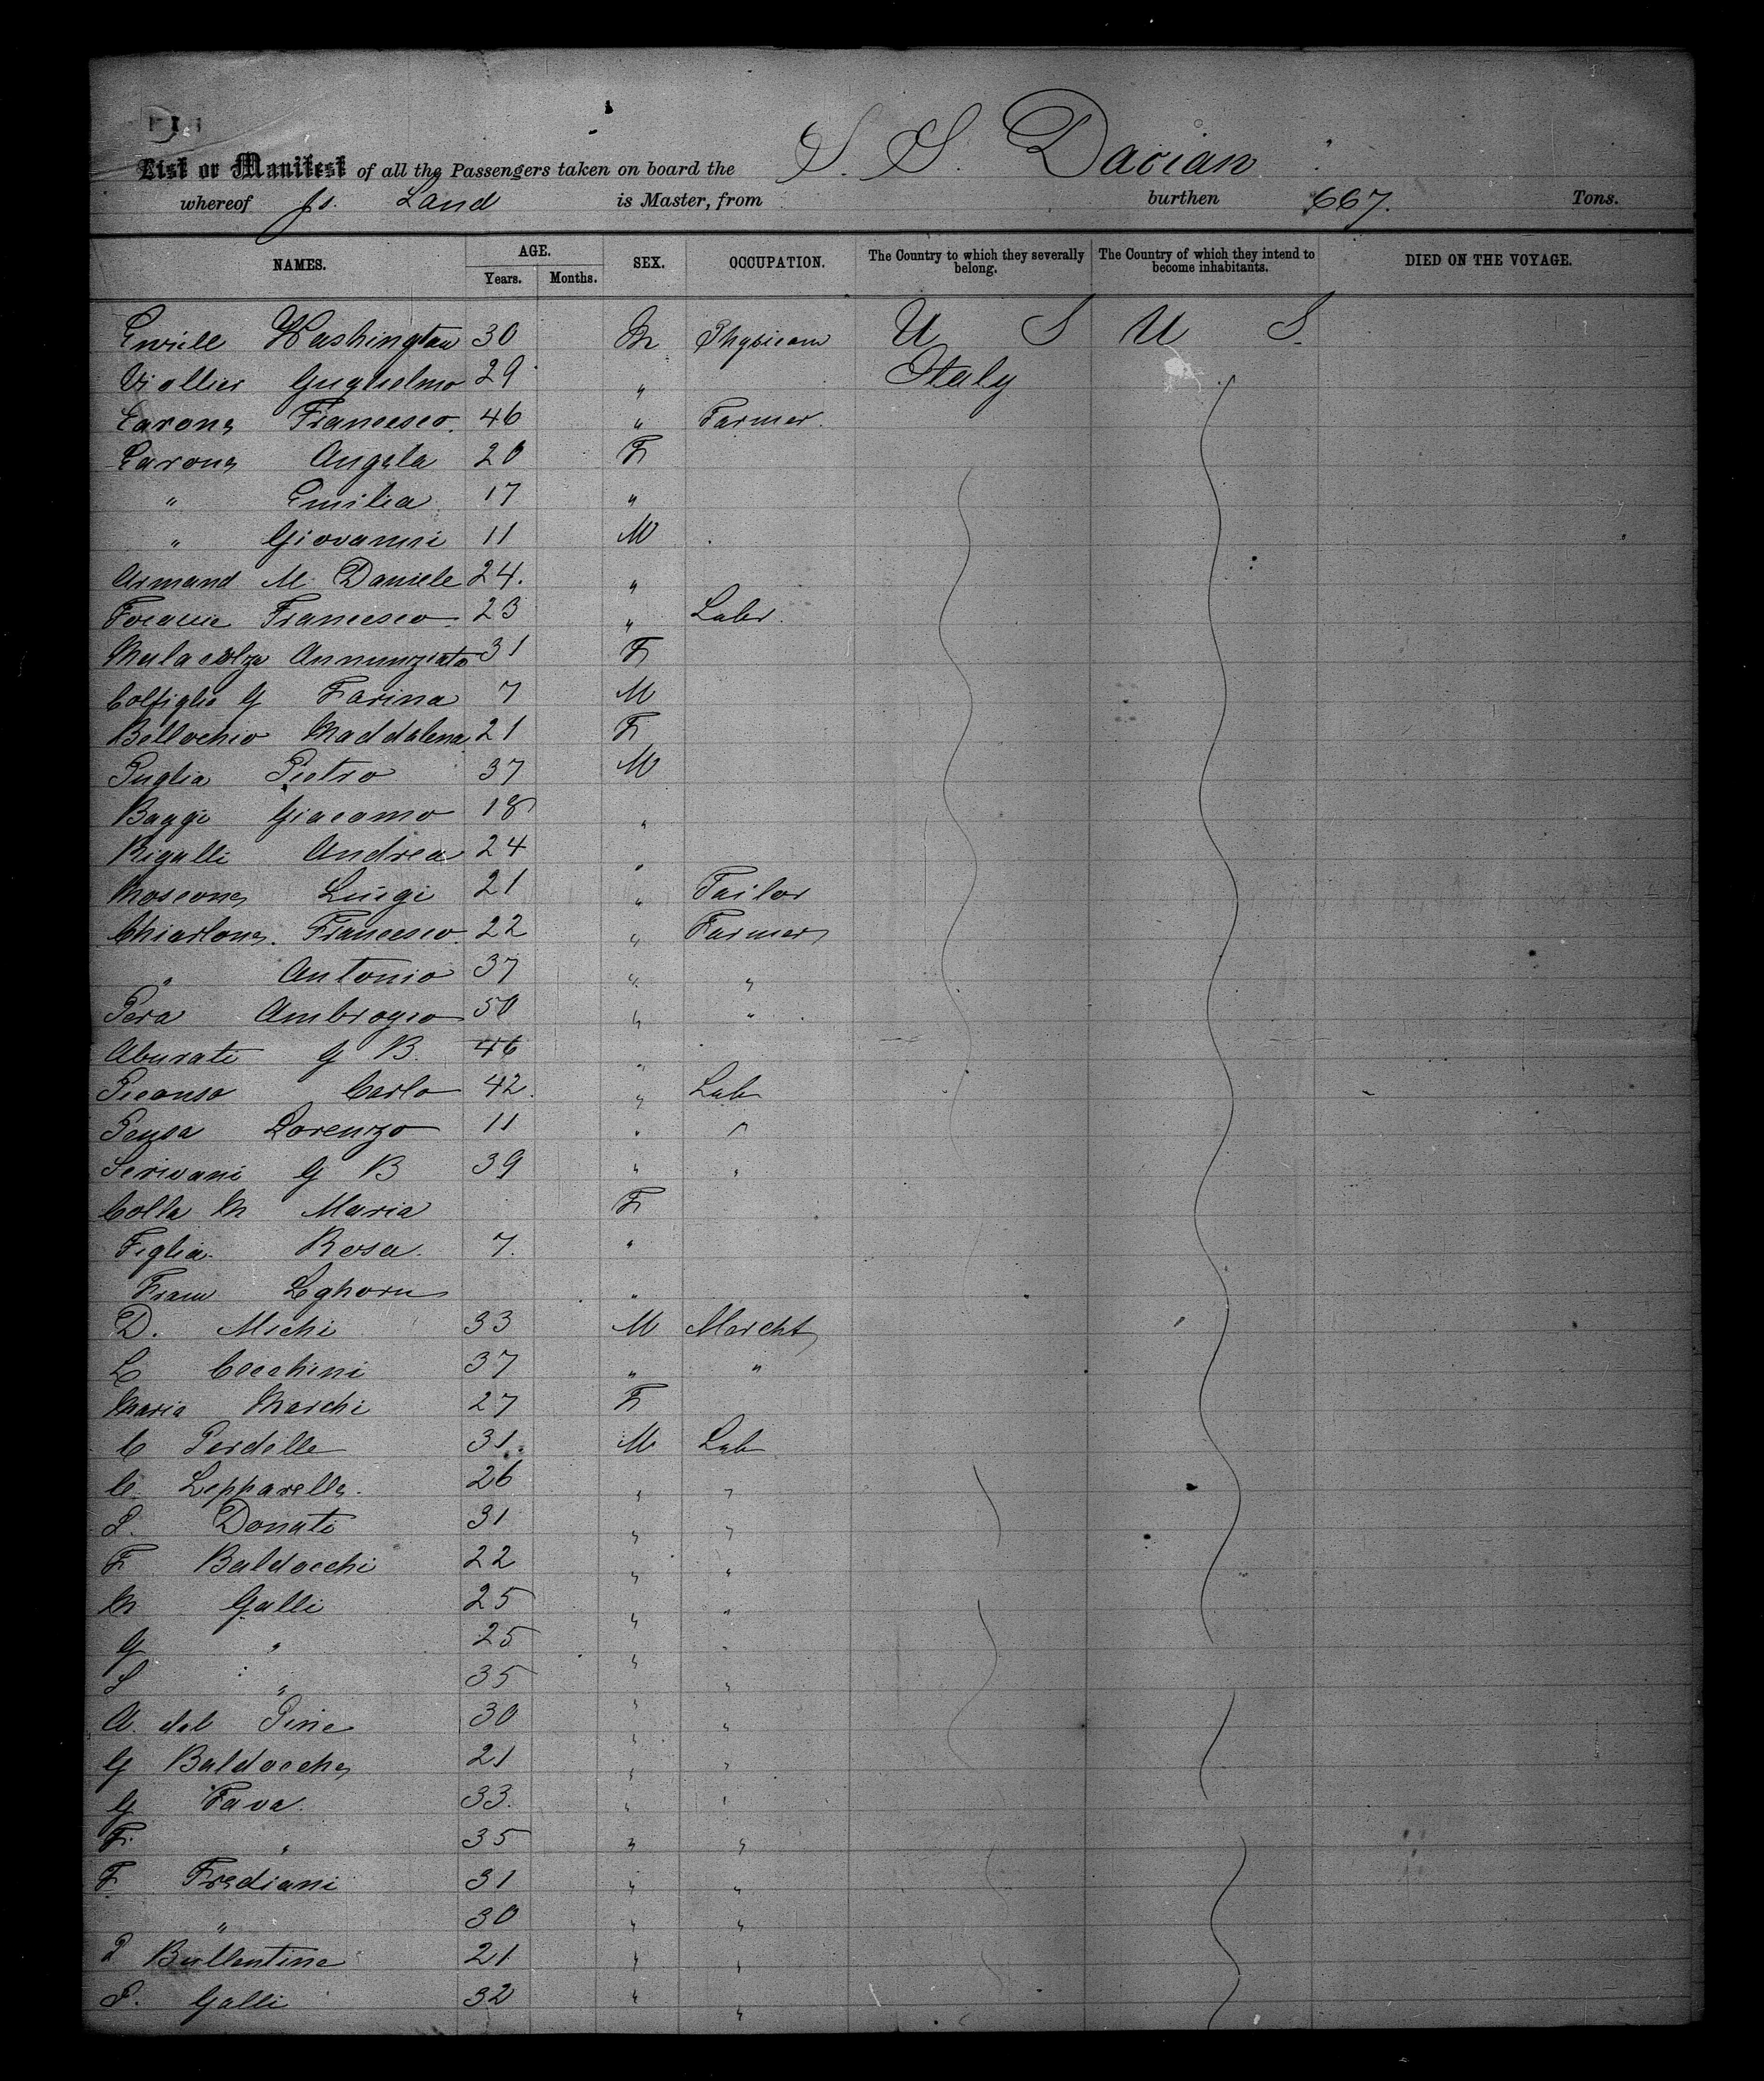 List or Manifest of all the Passengers taken on board the S. S. Dacian
whereof Js. Land is Master, from burthen 667. Tons.
NAMES. AGE. Years. Months. SEX. OCCUPATION. The Country to which they severally belong. The Country of which they intend to become inhabitants. DIED ON THE VOYAGE.
Washington 30 M Physician U S U S.
Viollier Guglielmo 29 " Italy
Carone Francesco. 46 " Farmer.
Carone Angela 20 F
" Emilia 17 "
" Giovanni 11 M
Armand M. Daniele 24. "
Francesco 23 " Labr.
Annunziata 31 F
Colfiglio G Farina 7 M
Bellochio Maddalena 21 F
Puglia Pietro 37 M
Baggi Giacomo 18 "
Rigalli Andrea 24 "
Moscone Luigi 21 " Tailor
Chiarlone. Francesco. 22 " Farmer
" Antonio 37 " "
Pera Ambrogio 50 " "
Aburati G B. 46 "
Carlo 42. " Lab
Pensa Lorenzo 11 " "
Scrivani G B 39 " "
Colla M Maria F
Figlia. Rosa. 7. "
From Leghorn "
D. Michi 33 M Marcht
L Cecchini 37 " "
Maria Marchi 27 F
C Perdelle 31. M Lab
C. Lepparelle. 26 " "
S. Donati 31 " "
F Baldocchi 22 " "
M Galli 25 " "
G " 25 " "
S " 35 " "
A. del Pine 30 " "
G Baldocche 21 " "
G Fava. 33. " "
F. " 35 " "
F. Frediani 31 " "
" 30 " "
P Ballentine 21 " "
S. Galli 32 " "